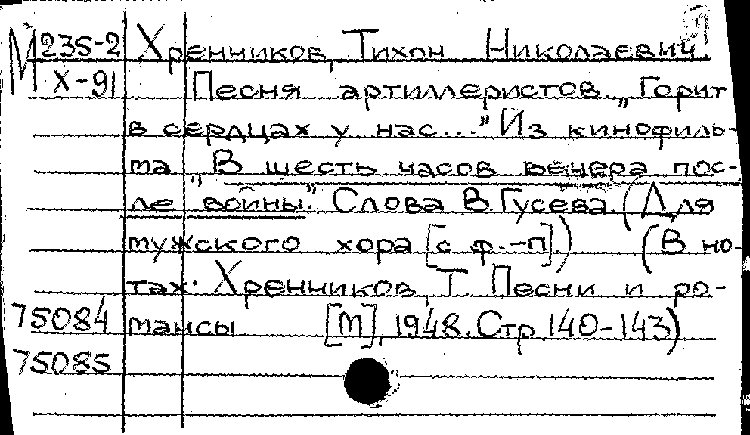 М 235-2 Хренников, Тихон Николаевич.
Х-91 Песня артиллеристов „Горит
в сердцах у нас..." Из кинофиль-
ма „В шесть часов вечера пос-
ле войны". Слова В. Гусева. (Для
мужского хора [с ф.-п].) (В но-
тах: Хренников, Т. Песни и ро-
75084 мансы [М], 1948. Стр. 140-143)
75085